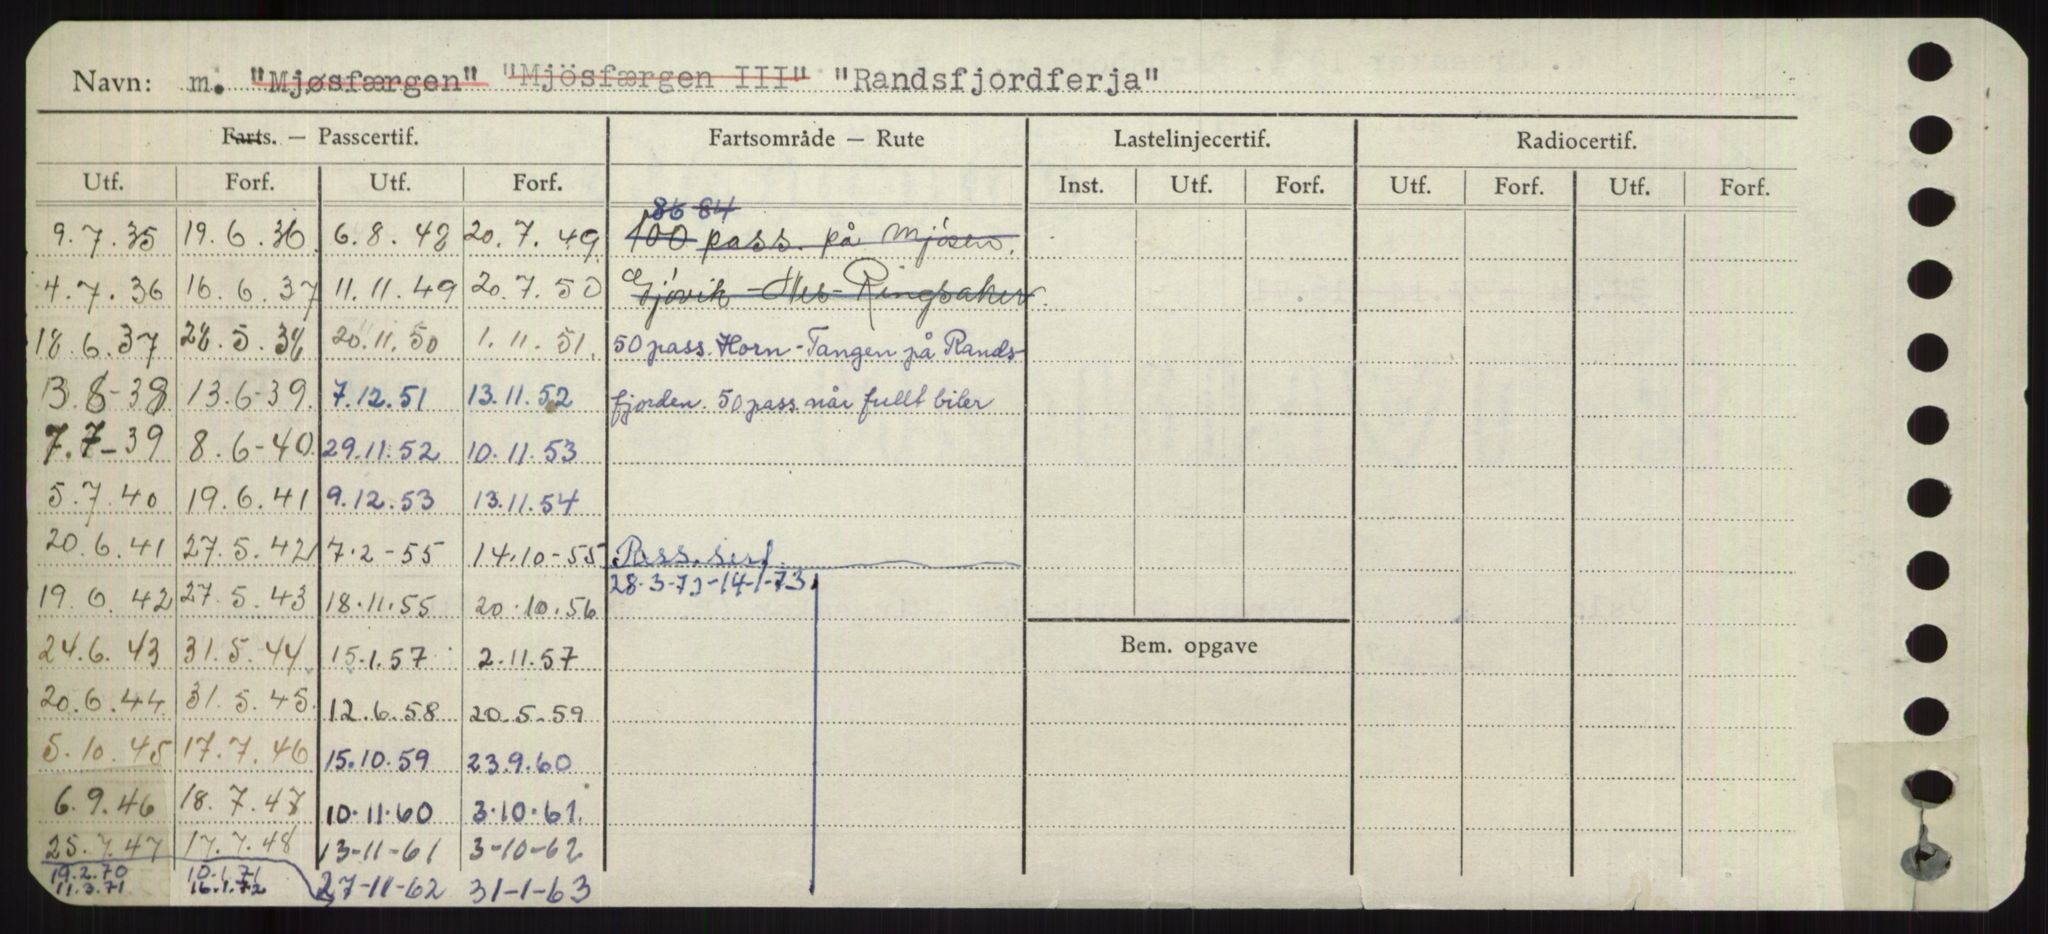 Navn: m. "Mjøsfærgen" "Mjösfærgen III" "Randsfjordferja"
Farts. — Passcertif. Fartsområde — Rute Lastelinjecertif. Radiocertif.
Utf. Forf. Utf. Forf. Inst. Utf. Forf. Utf. Forf. Utf. Forf.
86 84
9.7.35 19.6.36 6.8.48 20.7.49 100 pass. på Mjøsen.
4.7.36 16.6.37 11.11.49 20.7.50 Gjøvik - Nes - Ringsaker.
18.6.37 28.5.38 20.11.50 1.11.51. 50 pass. Horn - Tangen på Rands-
13.8-38 13.6-39. 7.12.51 13.11.52 fjorden. 50 pass når fullt biler
7.7-39 8.6-40. 29.11.52 10.11.53
5.7.40 19.6.41 9.12.53 13.11.54
20.6.41 27.5.42 7.2-55 14.10-55 Pass. sert
19.6.42 27.5.43 18.11.55 20.10.56 28-3-72-14-1-73
24.6.43 31.5.44 15.1.57 2.11.57 Bem. opgave
20.6.44 31.5.45. 12.6.58 20.5.59
5.10.45 17.7.46 15.10.59 23.9.60
6.9.46 18.7.47 10.11.60 3.10.61.
25.7.47 17.7.48 13-11-61 3-10-62
19.2.70 10.1.71 27-11-62 31-1-63
11.3.71 16.1.72